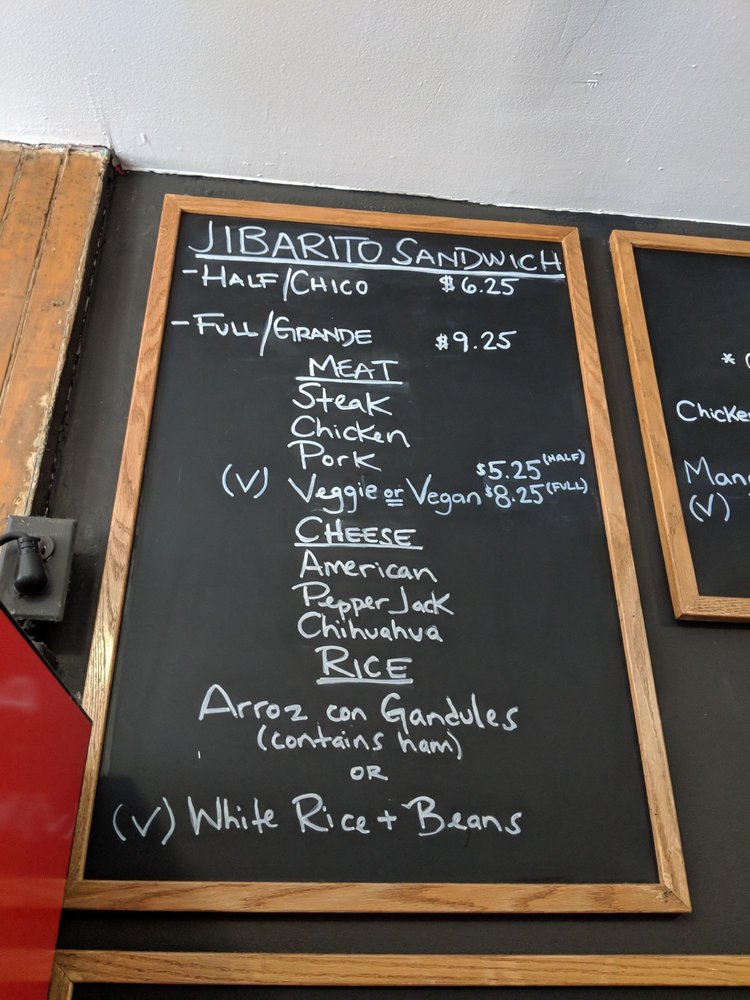 JIBARITO SANDWICH
-HALF/CHICO $6.25
-FULL/GRANDE $9.25
MEAT
Steak
Chicken
Pork
$5.25 (HALF)
(V) Veggie or Vegan $8.25 (FULL)
CHEESE
American
Pepper Jack
Chihuahua
RICE
Arroz con Gandules
(contains ham)
OR
(V) White Rice + Beans
*
(V)